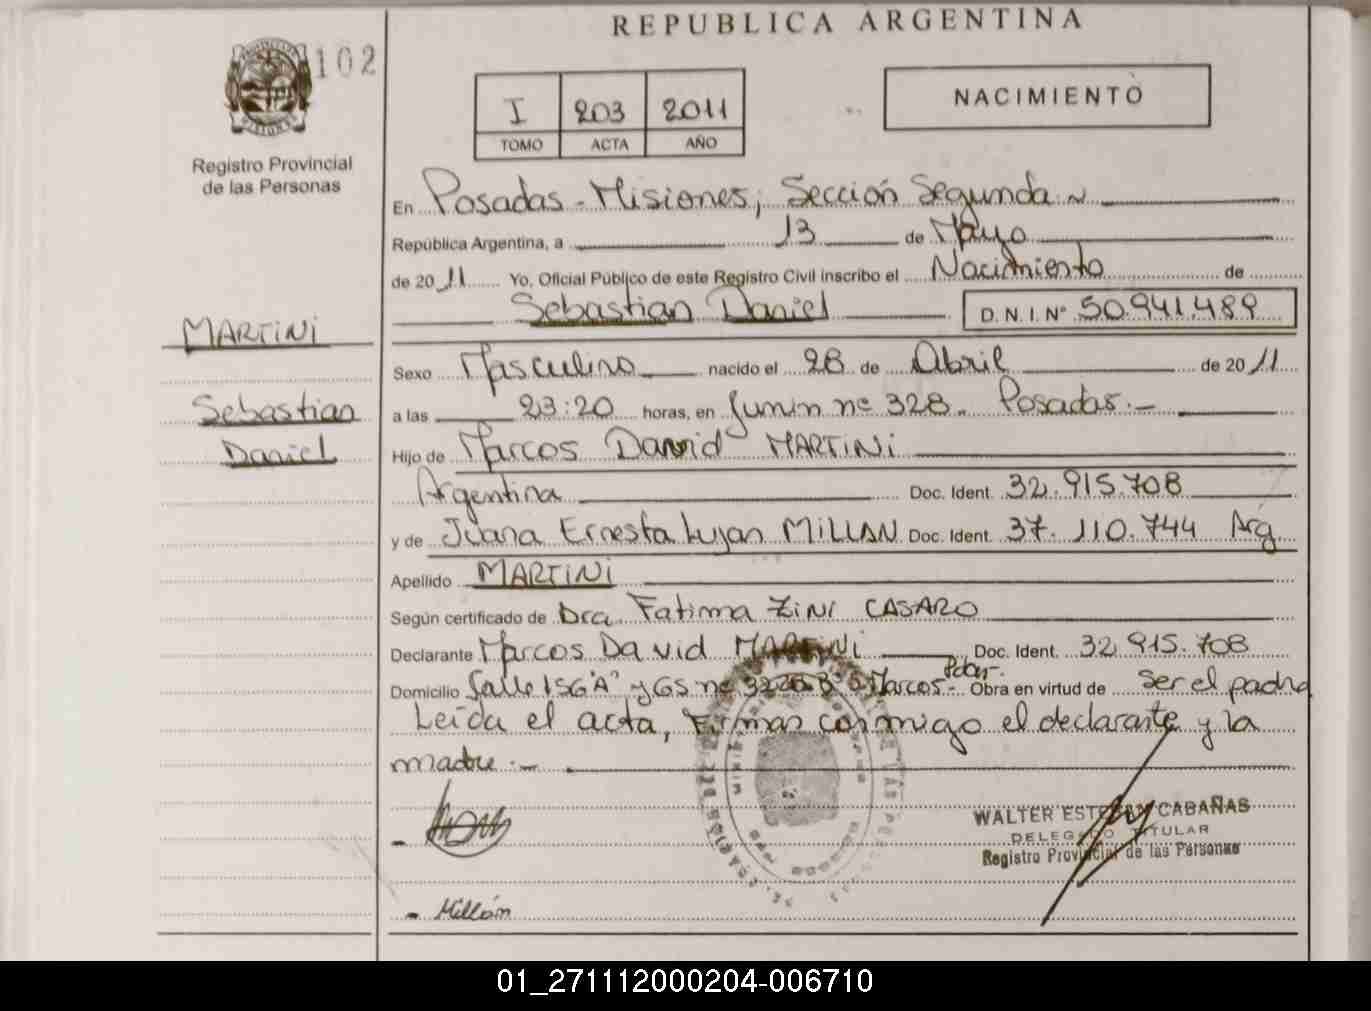 REPUBLICA ARGENTINA
102
I 203 2011
TOMO ACTA AÑO
NACIMIENTO
Registro Provincial
de las Personas
En Posadas - Misiones, Sección Segunda
República Argentina, a 13 de Mayo
de 2011 Yo, Oficial Público de este Registro Civil inscribo el Nacimiento de
Sebastian Daniel D.N.I.Nº 50.941.489
MARTINI
Sexo Masculino nacido el 28 de Abril de 2011
Sebastian
a las 23:20 horas, en Junin nº 328. Posadas.-
Daniel
Hijo de Marcos David MARTINI
Argentina Doc. Ident. 32.915.708
y de Juana Ernesta Lujan MILLAN Doc. Ident. 37.110.744 Arg
Apellido MARTINI
Según certificado de Dra. Fatima ZINI CASARO
Declarante Marcos David MARTINI Doc. Ident. 32.915.708
Domicilio Calle 156"A" y Marcos - Pdas.- Obra en virtud de Ser el padre
Leída el acta, Firman conmigo el declarante y la
madre.-
WALTER ESTEBAN CABAÑAS
DELEGADO TITULAR
Registro Provincial de las Personas
- Millán
01_271112000204-006710